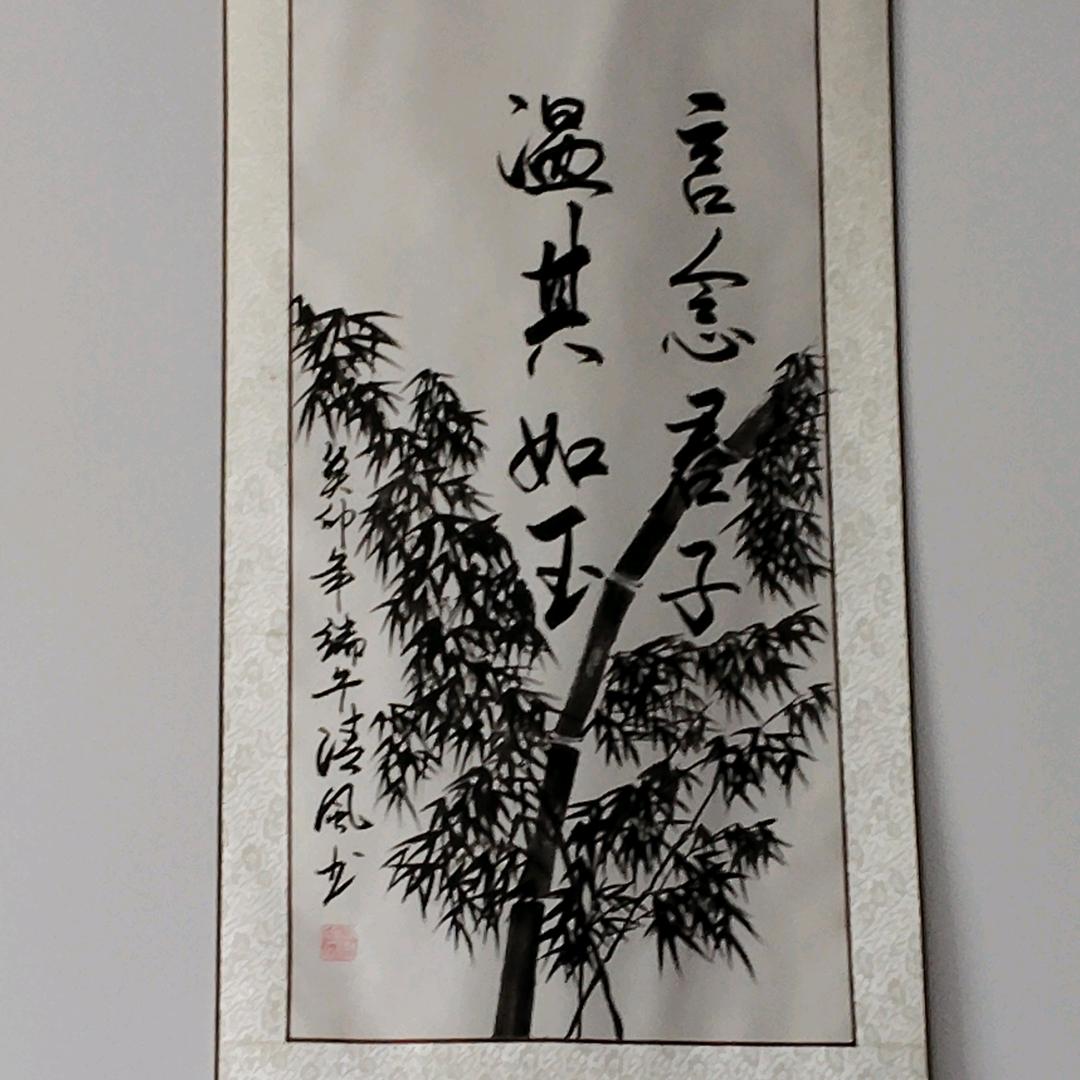 言念君子
温其如玉
癸卯年端午清风书